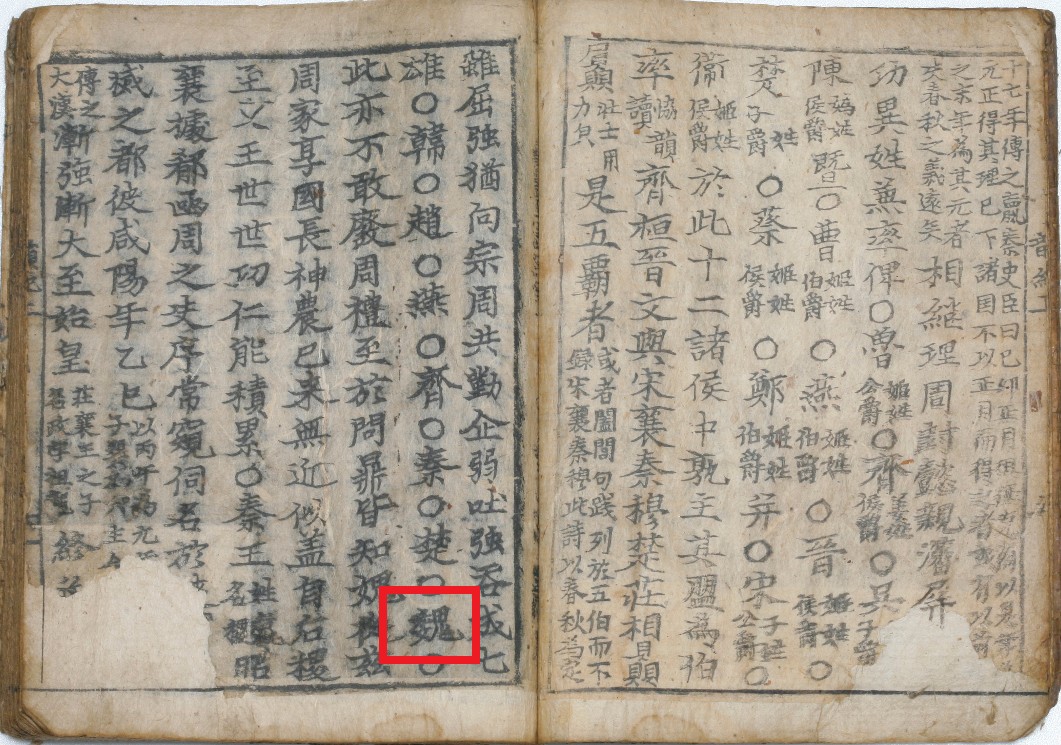 十七年傳之嬴秦史臣曰已卯正月
元正得其理已下諸国不以正月而得之者或有以
之末年為其元者
失春秋之義遠矣
相継理周封懿親藩屏
功異姓兼率俾○魯姬姓公爵○齊姜姓侯爵○吳子爵
陳媯姓侯爵曁○曹姬姓伯爵○燕姬姓伯爵○晉姬姓侯爵○
楚姓子爵○蔡姬姓侯爵○鄭姬姓伯爵并○宋子姓公爵○
衛姬姓侯爵於此十二諸侯中孰主其盟為伯
率讀協韻齊桓晉文與宋襄秦穆楚莊相贔
屓贔壯士用力皃是五覇者或者闔閭句践列於五伯而不錄宋襄秦穆此詩以春秋為定
雖屈強猶向宗周共勤企弱吐強吞成七
雄○韓○趙○燕○齊○秦○楚○魏○
此亦不敢廢周禮至於問鼎皆知媿玆
周家享國長神農已来無近似盖自后稷
至文王世世功仁能積累○秦王姓嬴名稷昭
襄據郁函周之失序常窺伺名於
滅之都彼咸陽年乙巳以丙午為元
傳之大漢漸強漸大至始皇莊襄王之子政終